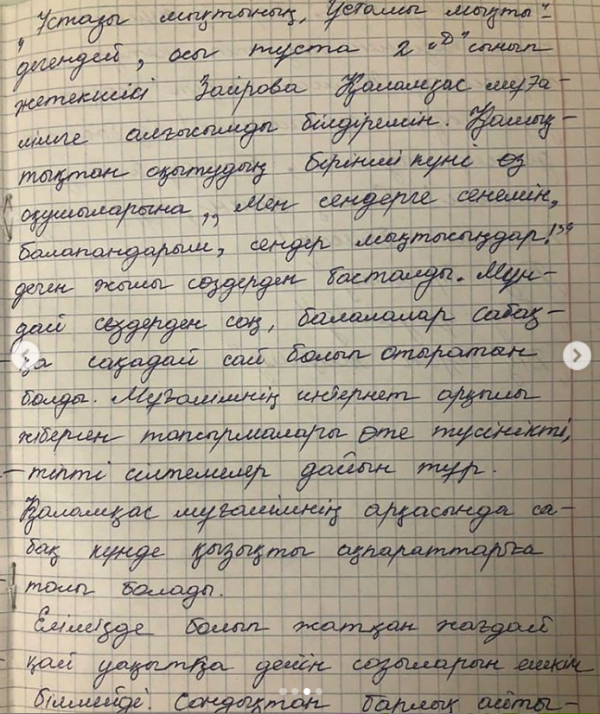 „Ұстазы мықтының, ұстамы мықты"
дегендей, осы тұста 2 „Д" сынып
жетекшісі Заирова Қаламқас мұға-
лімге алғысымды білдіремін. Қашық-
тықтан оқытудың бірінші күні өз
оқушыларына „Мен сендерге сенемін,
балапандарым, сендер мықтысыңдар!"
деген жылы сөздерден басталды. Мұн-
дай сөздерден соң, балалалар сабақ-
қа сақадай сай болып отыратын
болды. Мұғалімнің интернет арқылы
жіберген тапсырмалары өте түсінікті,
тіпті сілтемелер дайын тұр.
Қаламқас мұғалімнің арқасында са-
бақ күнде қызықты ақпараттарға
толы болады.
Елімізде болып жатқан жағдай
қай уақытқа дейін созыларын ешкім
білмейді. Сондықтан барлық айты-